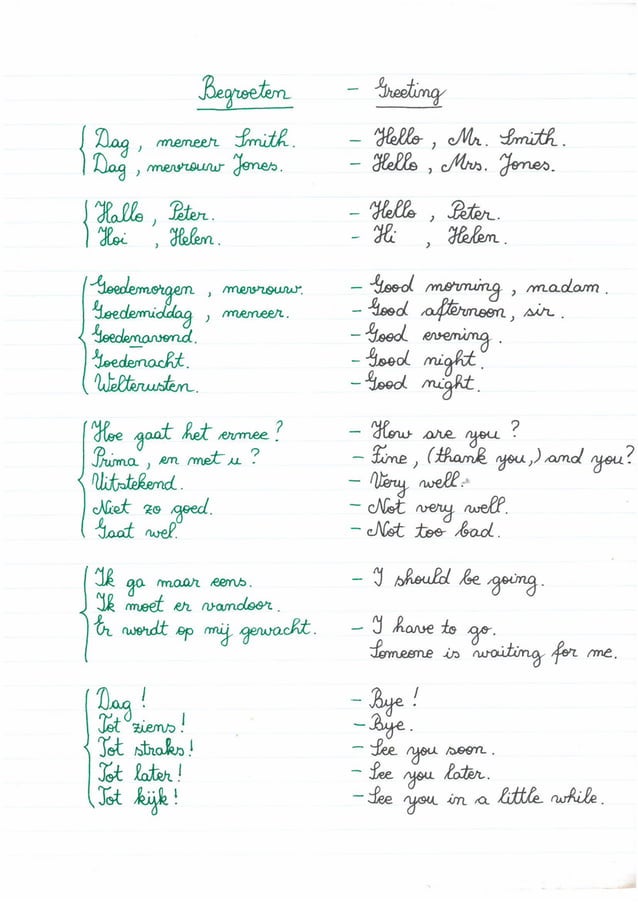 Begroeten - Greeting
Dag, meneer Smith. - Hello, Mr. Smith.
Dag, mevrouw Jones. - Hello, Mrs. Jones.
Hallo, Peter. - Hello, Peter.
Hoi, Helen. - Hi, Helen.
Goedemorgen, mevrouw. - Good morning, madam.
Goedemiddag, meneer. - Good afternoon, sir.
Goedenavond. - Good evening.
Goedenacht. - Good night.
Welterusten. - Good night.
Hoe gaat het ermee? - How are you?
Prima, en met u? - Fine, (thank you,) and you?
Uitstekend. - Very well.
Niet zo goed. - Not very well.
Gaat wel. - Not too bad.
Ik ga maar eens. - I should be going.
Ik moet er vandoor.
Er wordt op mij gewacht. - I have to go.
Someone is waiting for me.
Dag! - Bye!
Tot ziens! - Bye.
Tot straks! - See you soon.
Tot later! - See you later.
Tot kijk! - See you in a little while.